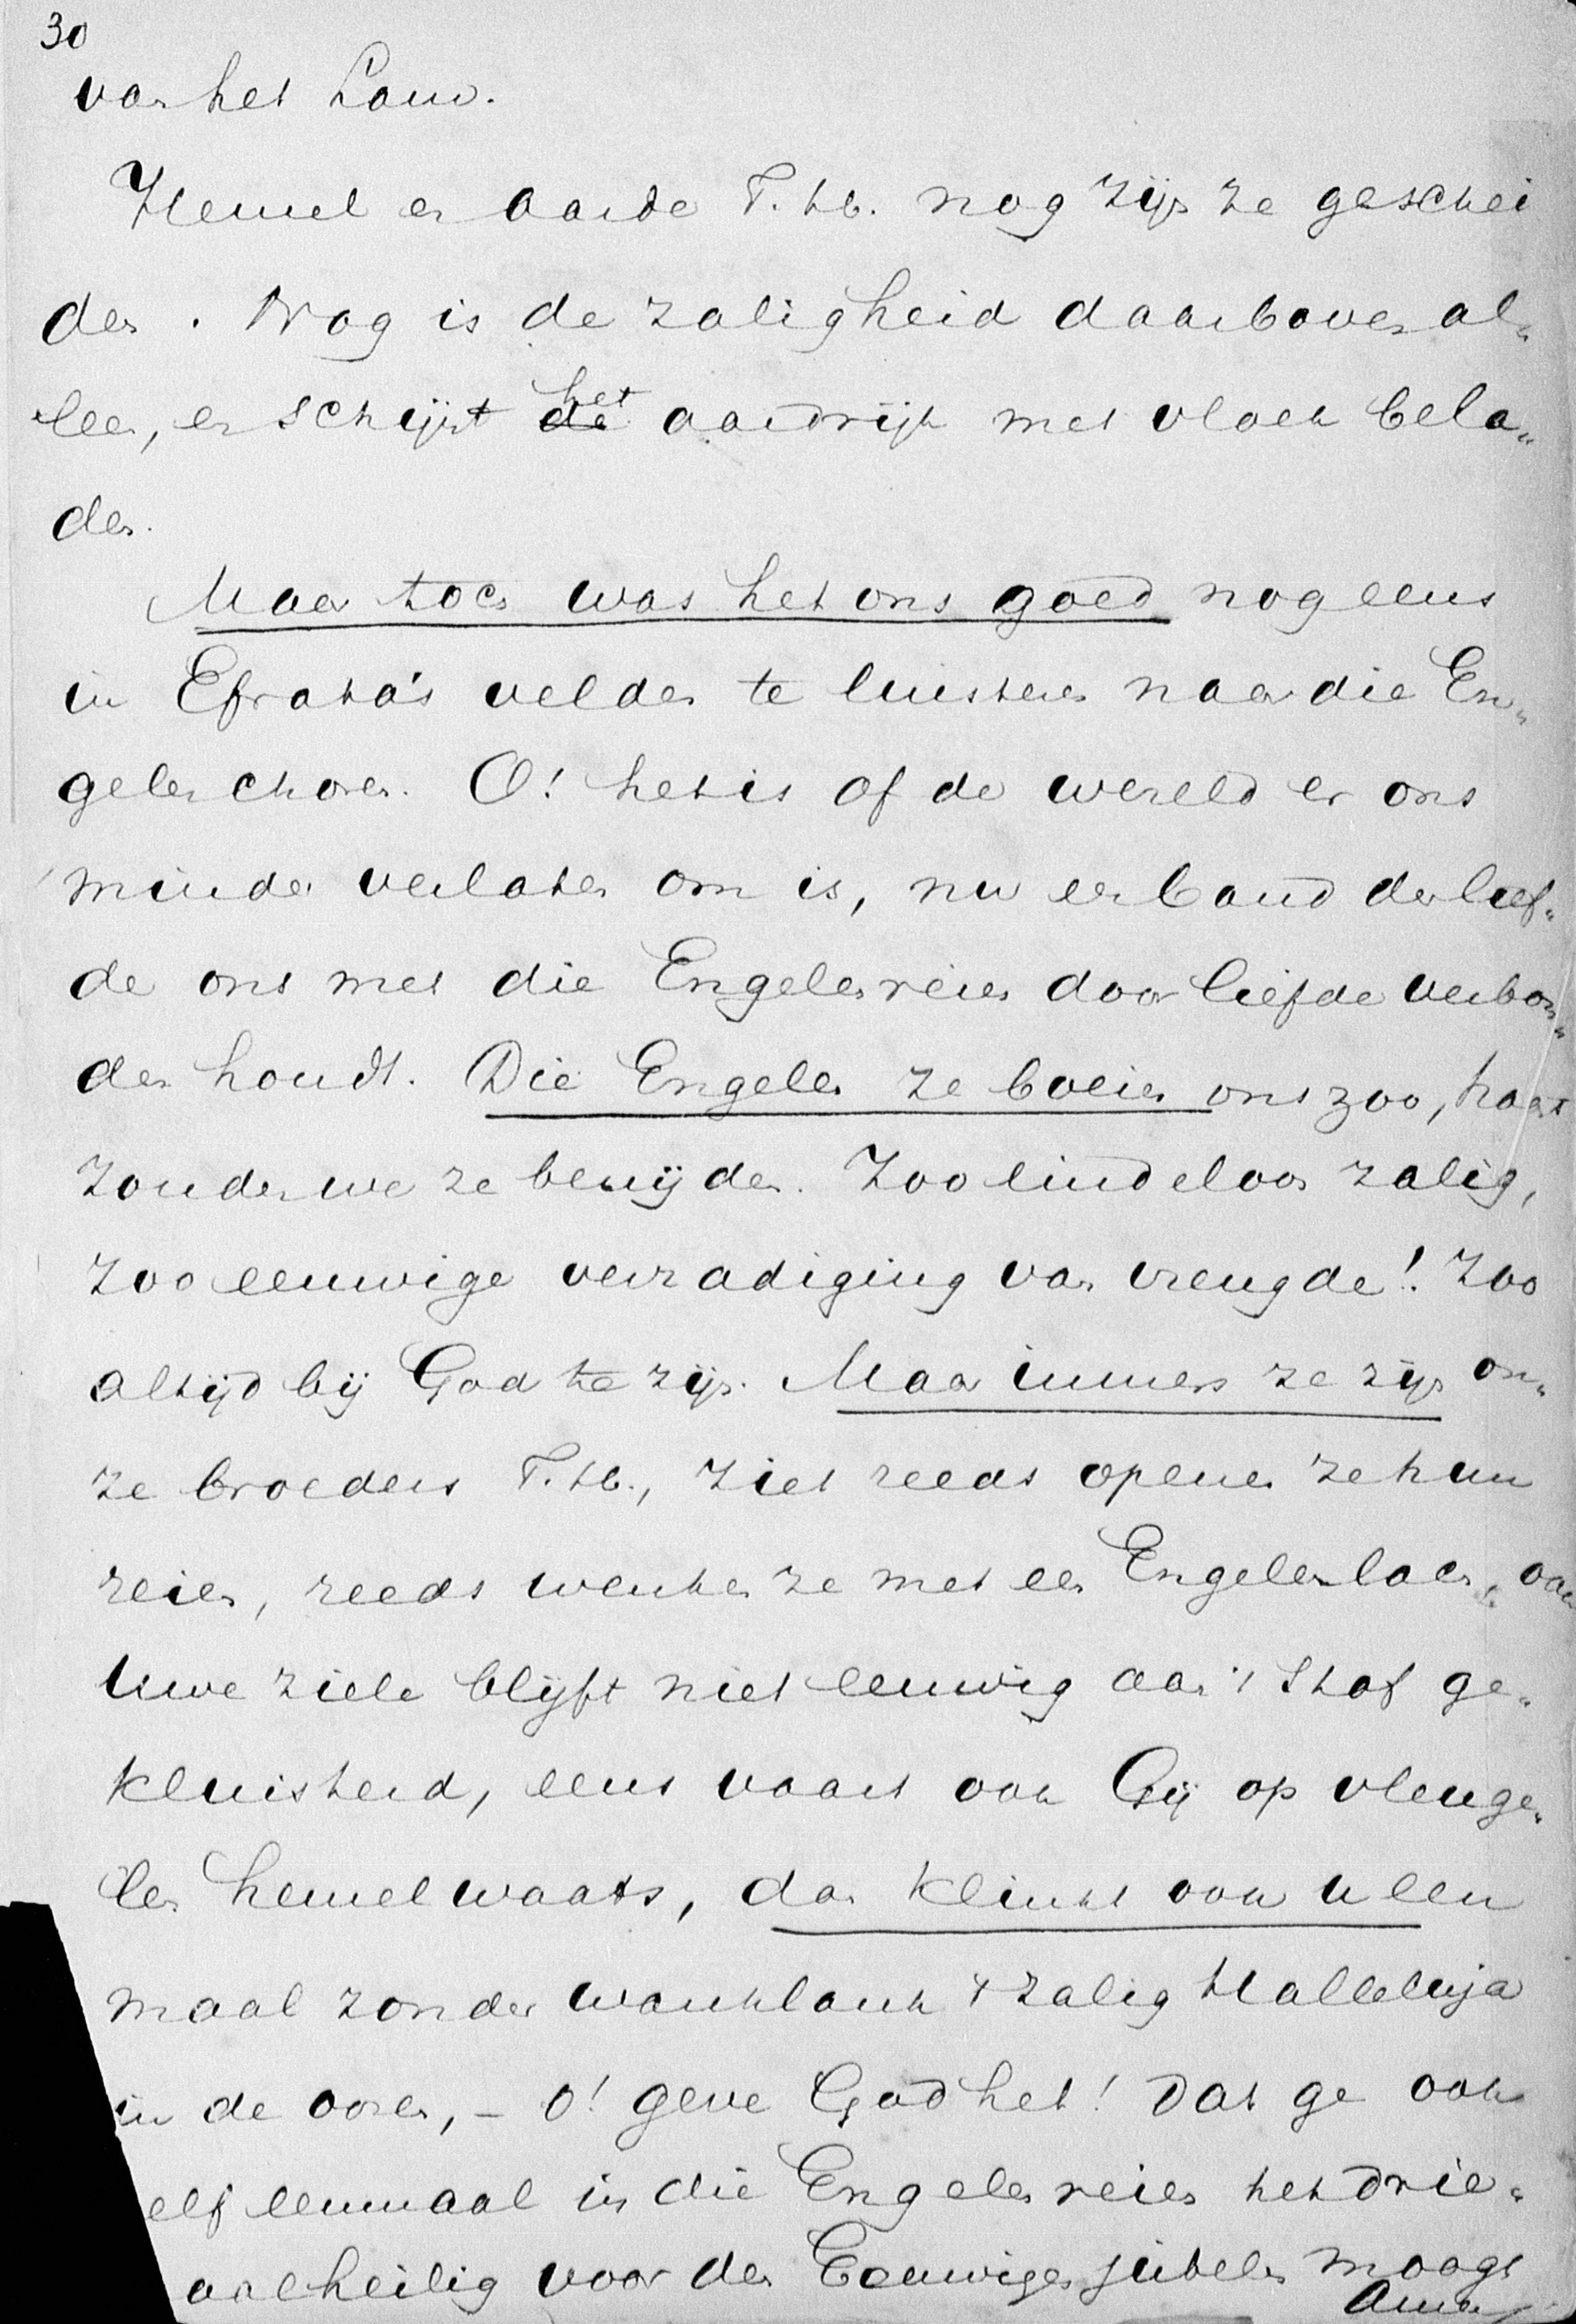 30
van het Lam.
Hemel en aarde T. H. nog zijn ze geschei
den. Nog is de zaligheid daarboven al„
leen, en schijnt het aardrijk met vloek bela„
den.
Maar toch was het ons goed nog eens
in Efrata's velden te luisteren naar die En„
gelenchoren. O! het is of de wereld er ons
minder verlaten om is, nu een band der lief„
de ons met die Engelenreien door liefde verbon„
den houdt. Die Engelen ze boeien ons zoo, haast
zouden we ze benijden. Zoo eindeloos zalig,
zoo eeuwige verzadiging van vreugde! Zoo
altijd bij God te zijn. Maar immers ze zijn on„
ze broeders T. H., ziet reeds openen ze hun
reien, reeds wenken ze met een Engelenlach,
Uwe ziele blijft niet eeuwig aan 't stof ge„
kluisterd, eens vaart ook Gij op vleuge„
len hemelwaarts, dan klinkt ook u een
maal zonder wanklank 't zalig Halleluja
in de ooren, – o! geve God het! Dat ge ook
elf eenmaal in die Engelenreien het drie„
aalheilig voor den Eeuwigen jubelen moogt
Amen